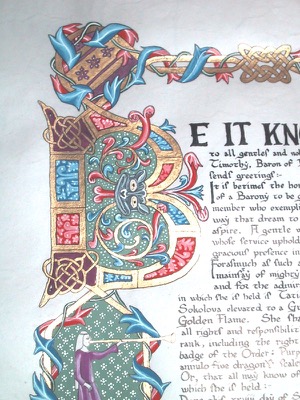 BE IT KNO
to all gentles and nob
Timothy, Baron of
sends greetings:-
It betimes the ho
of a Barony to be g
member who exempl
way that dream to
aspire. A gentle w
whose service uphold
gracious presence in
Forasmuch as such a
mainstay of mighty
and for the admir
in which she is held is Cat
Sokolova elevated to a Gu
Golden Flame. She sha
all rights and responsibilit
rank, including the right
badge of the Order: Purp
annulo five dragon's scales
Or, that all may know of
which she is held:-